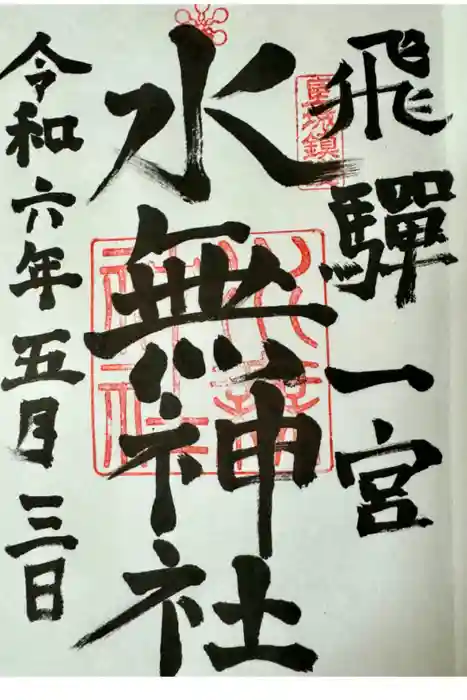 飛騨一宮
水無神社
令和六年五月三日